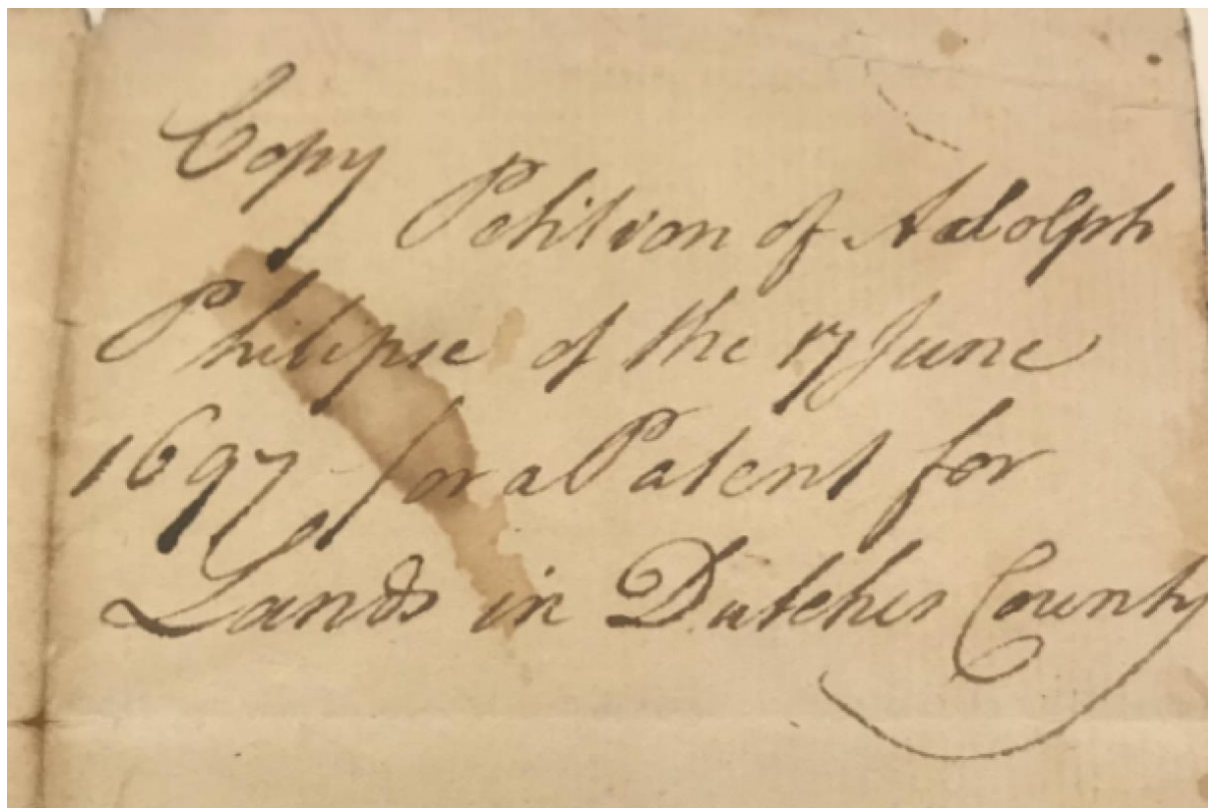 Copy
Petition of Adolph
Philipse of the 17 June
1697 for a Patent for
Lands in Dutches County